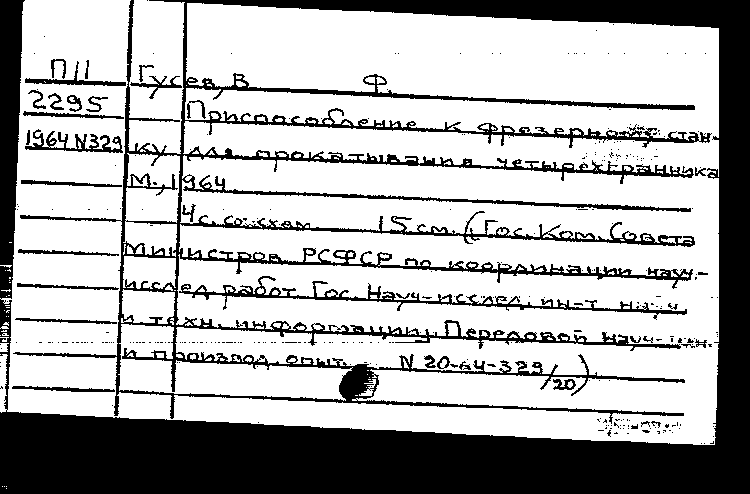 П11 Гусев, В Ф.
2295 Приспособление к фрезерному стан-
1964 N329 ку для прокатывания четырехгранника
М., 1964
4 с. со схем. 15 см. (Гос. Ком. Совета
Министров РСФСР по координации науч.-
исслед. работ. Гос. Науч-исслед. ин-т науч.
и техн. информации. Передовой науч-техн.
и производ. опыт. N 20-64-329/20).